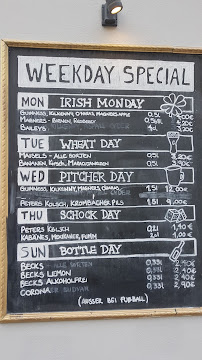 WEEKDAY SPECIAL
MON IRISH MONDAY
GUINNESS, KILKENNY, O'HARAS, MAGNERS APPLE 0,5l
MAGNERS 0,568l
BAILEYS 4cl
TUE WHEAT DAY
MAISELS - ALLE SORTEN 0,5l
BANANEN, KIRSCH,
WED PITCHER DAY
GUINNESS, KILKENNY, MAGNERS, 1,5l 12,00€
PETERS KÖLSCH, KROMBACHER PILS 1,5l 9,00€
THU SCHOCK DAY
PETERS KÖLSCH 0,2l 1,40€
KABÄNES, 2cl 1,40€
SUN BOTTLE DAY
BECKS 0,33l 2,40€
BECKS LEMON 0,33l 2,40€
BECKS ALKOHOLFREI 0,33l 2,40€
CORONA 0,33l
(AUSSER BEI FUßBALL)